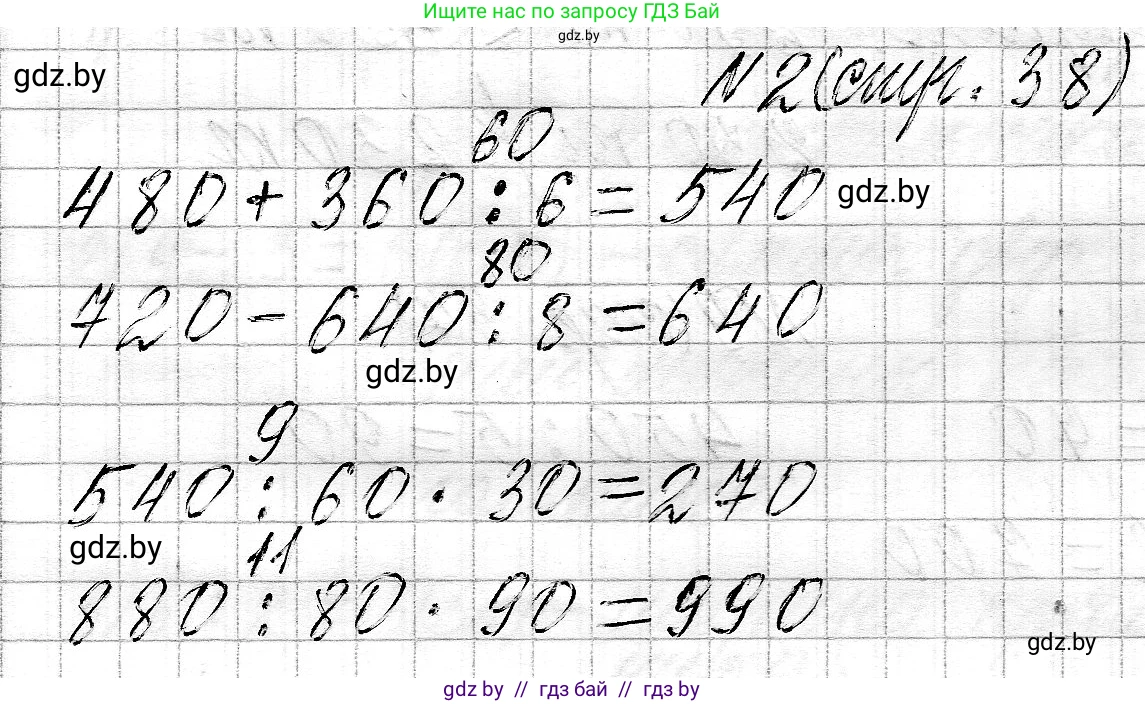 Ищите нас по запросу ГДЗ Бай
gdz.by
gdz.by
N 2 (стр. 38)
60
480 + 360 : 6 = 540
gdz.by
80
720 - 640 : 8 = 640
gdz.by
9
540 : 60 · 30 = 270
gdz.by
11
880 : 80 · 90 = 990
gdz.by
gdz by // гдз бай // гдз by